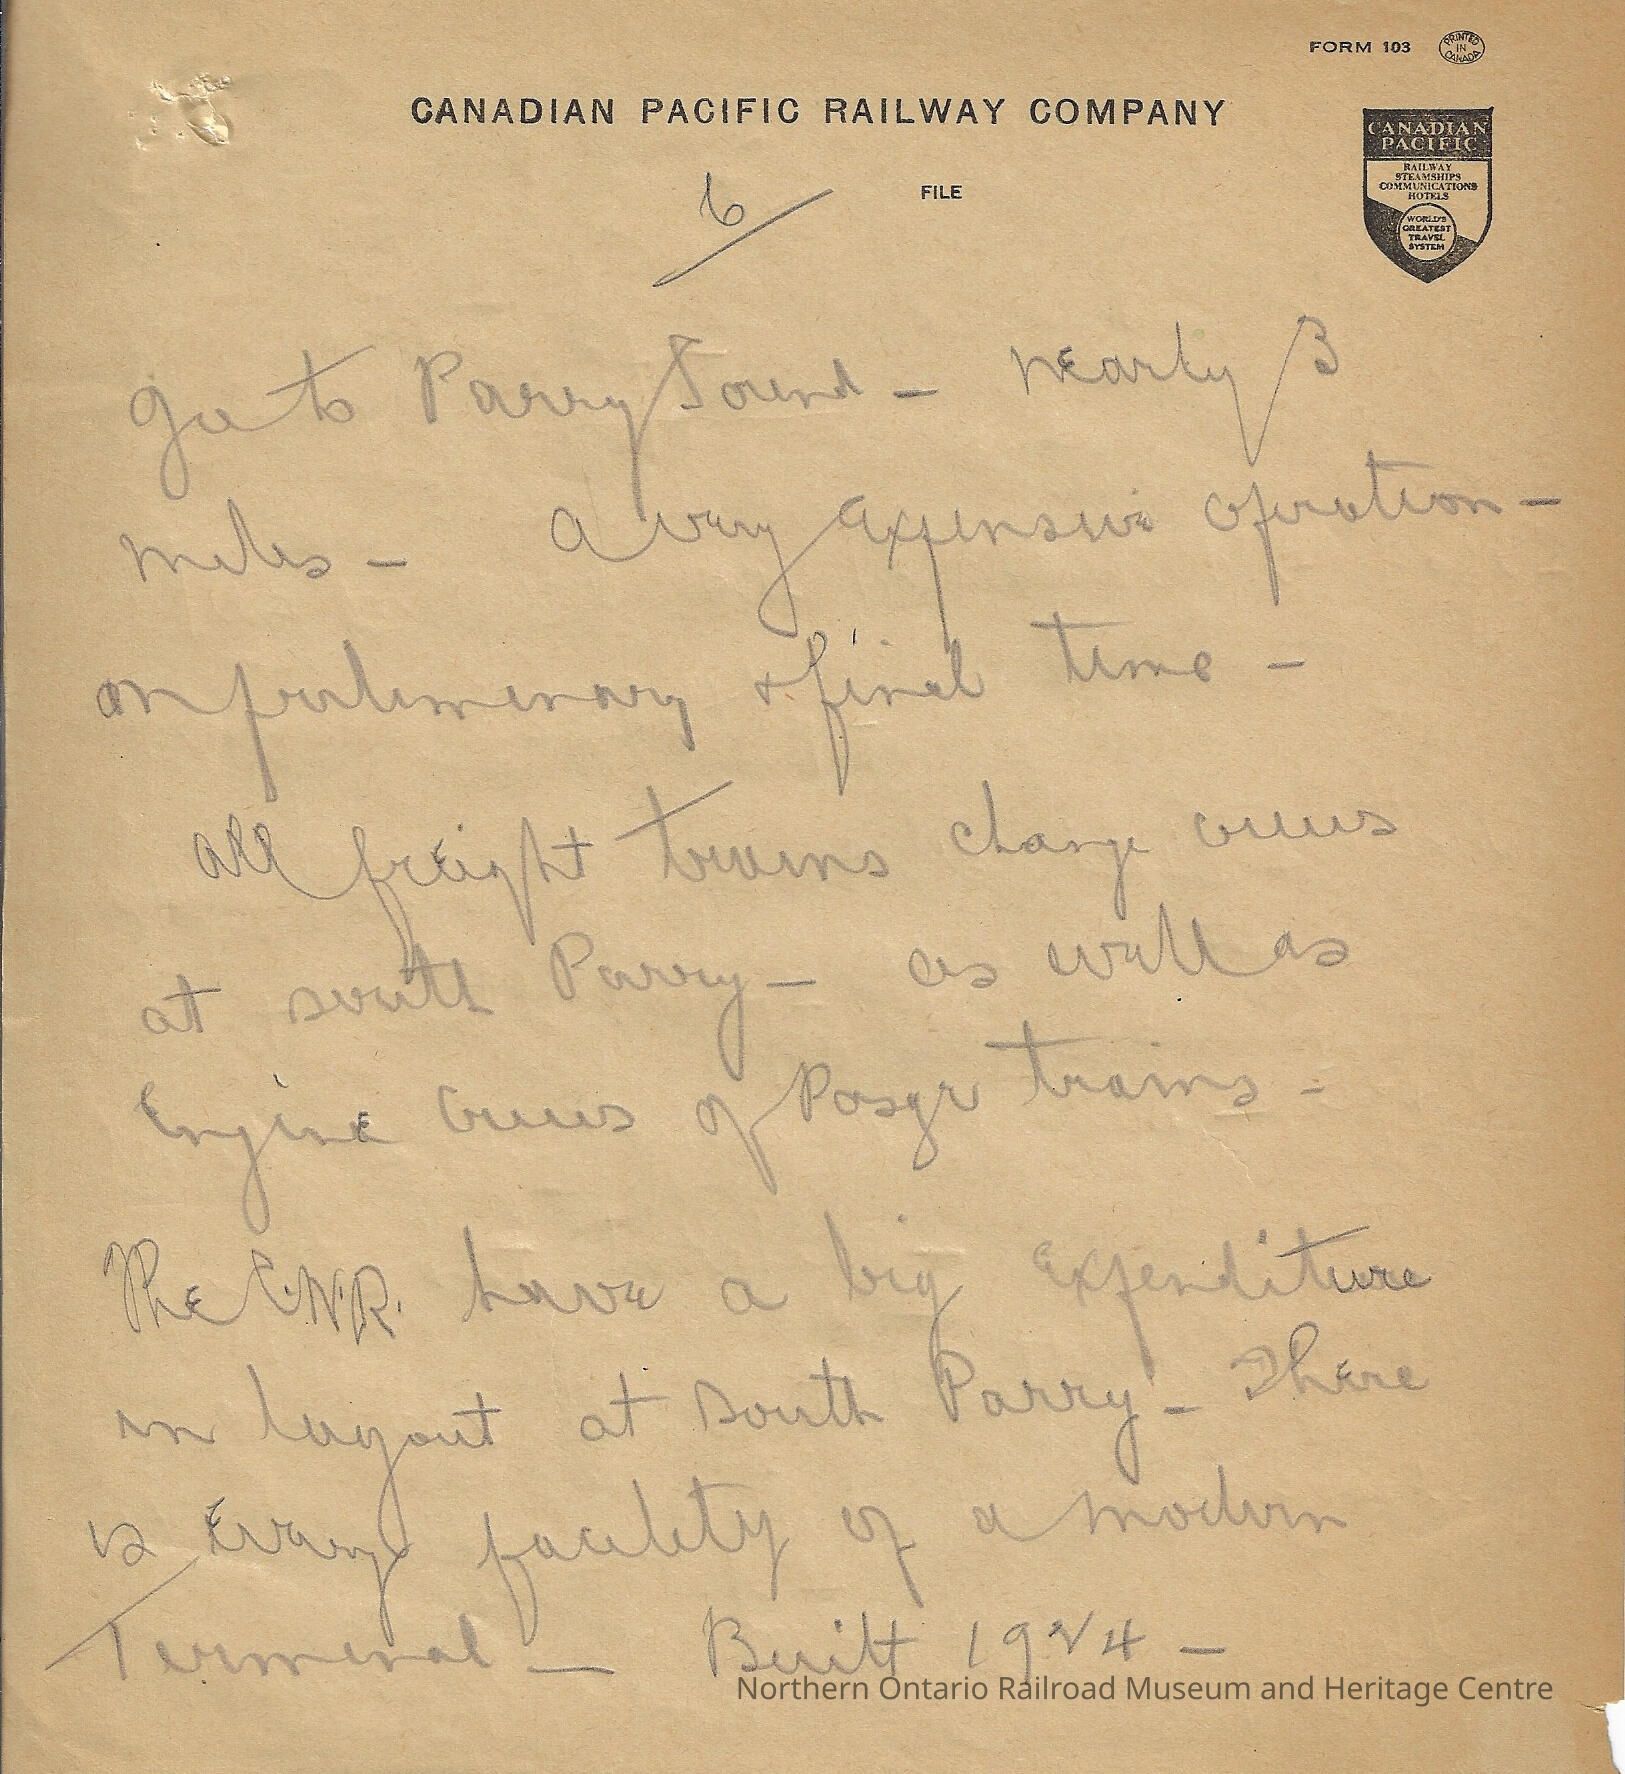 FORM 103 PRINTED IN CANADA
CANADIAN PACIFIC RAILWAY COMPANY
CANADIAN
PACIFIC
RAILWAY
STEAMSHIPS
COMMUNICATIONS
HOTELS
WORLD'S
GREATEST
TRAVEL
SYSTEM
6 FILE
go to Parry Sound - nearly 3
miles - a very expensive operation -
on preliminary & final time -
All freight trains change crews
at south Parry - as well as
Engine Crews of Pasgr trains -
The C.N.R. have a big expenditure
in layout at South Parry - There
is Every facility of a modern
Terminal - Built 1924 -
Northern Ontario Railroad Museum and Heritage Centre